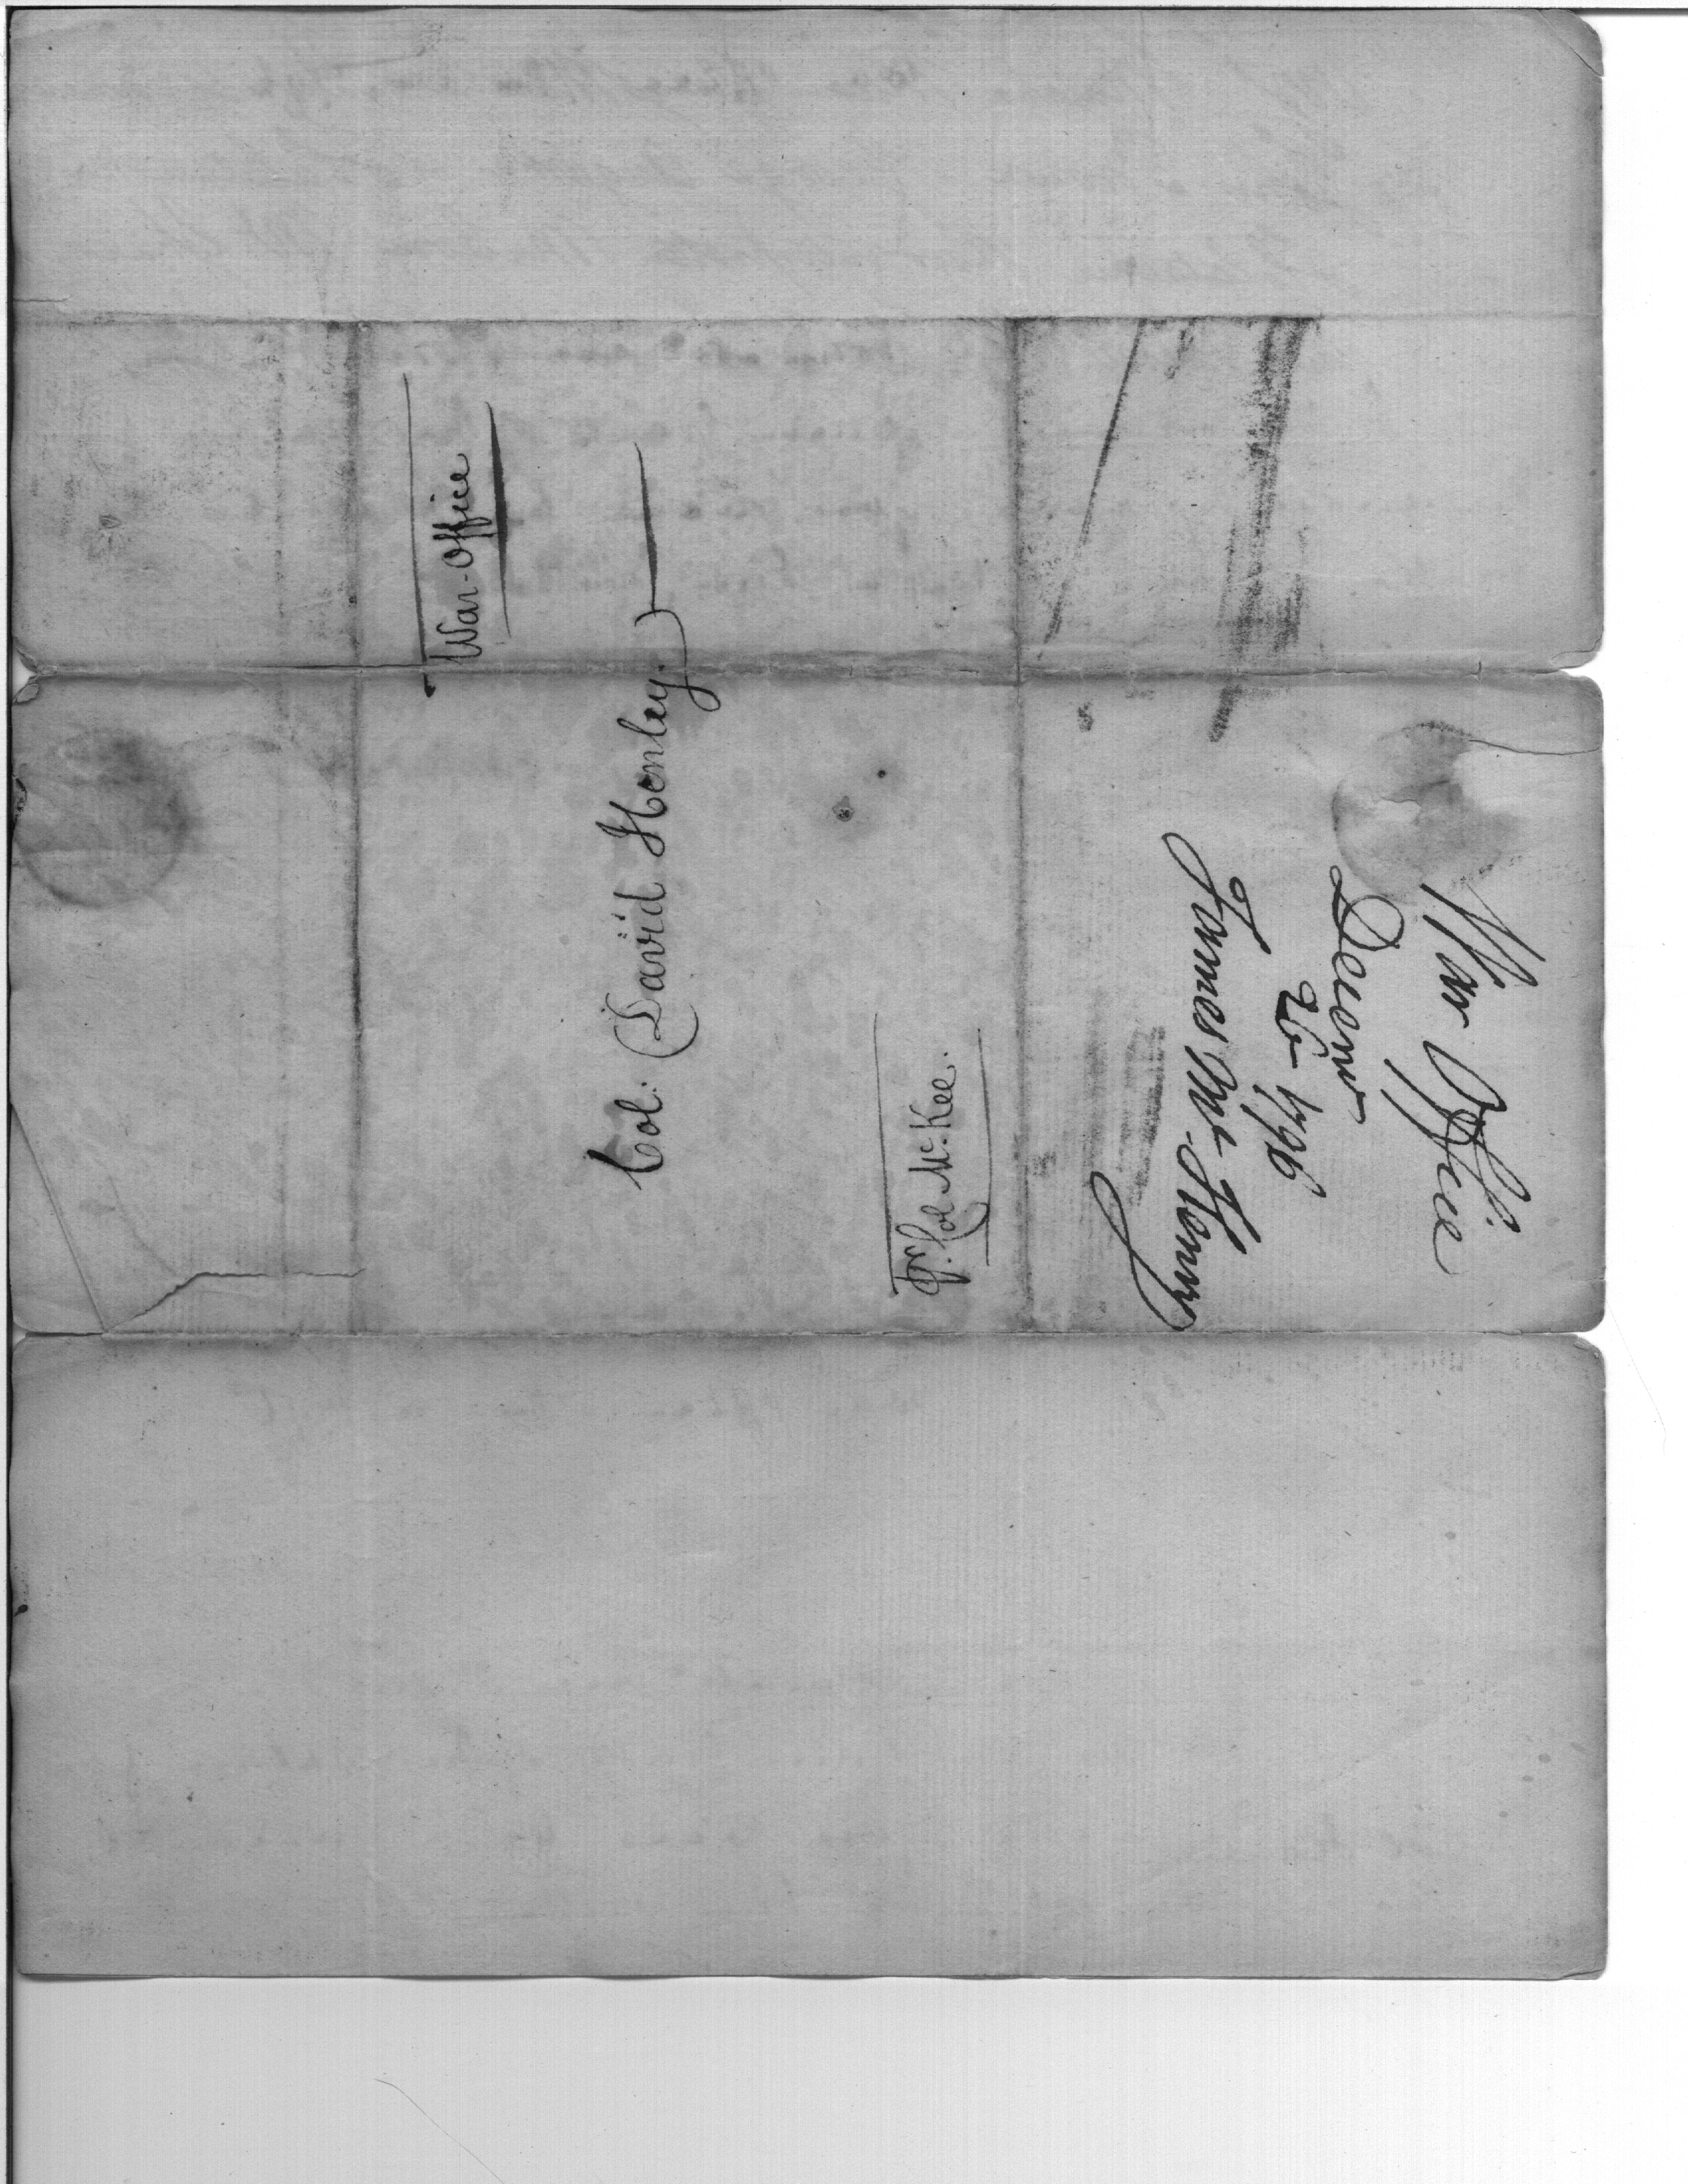 War-Office
Col: David Henley.
Pr. Col McKee.
War Office
Decemr
26 - 1796
James Mc. Henry